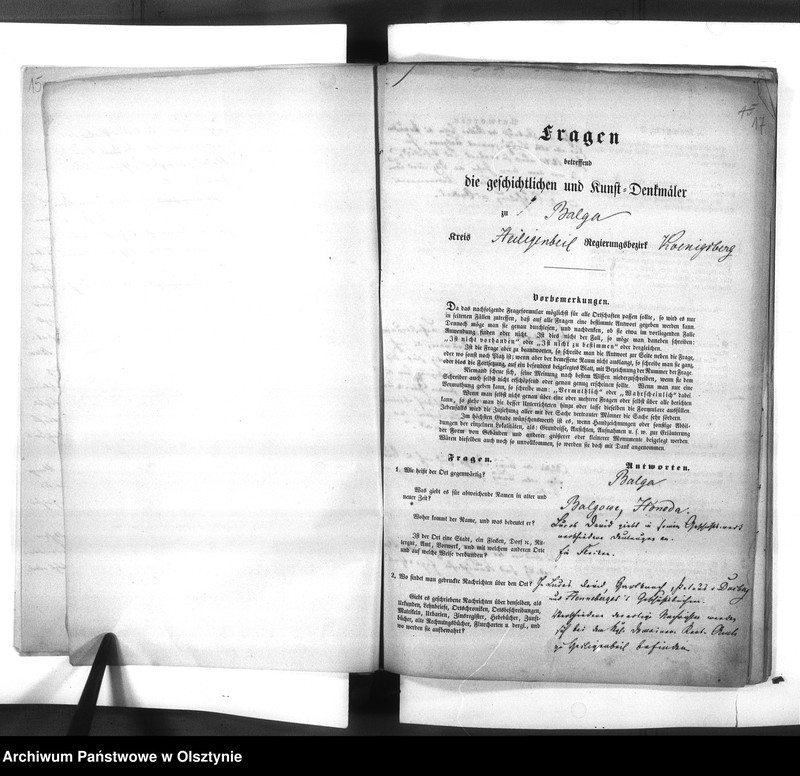 15
45
17
Fragen
betreffend
die geschichtlichen und Kunst-Denkmäler
zu Balga
Kreis Heiligenbeil Regierungsbezirk Koenigsberg
Vorbemerkungen.
Da das nachfolgende Frageformular möglichst für alle Ortschaften passen sollte, so wird es nur
in seltenen Fällen zutreffen, daß auf alle Fragen eine bestimmte Antwort gegeben werden kann.
Dennoch möge man sie genau durchlesen, und nachdenken, ob sie etwa im vorliegenden Falle
Anwendung finden oder nicht. Ist dies nicht der Fall, so möge man daneben schreiben:
„Ist nicht vorhanden“ oder „Ist nicht zu bestimmen“ oder dergleichen.
Ist die Frage aber zu beantworten, so schreibe man die Antwort zur Seite neben die Frage,
oder wo sonst noch Platz ist; wenn aber der bemessene Raum nicht auslangt, so schreibe man sie ganz,
oder blos die Fortsetzung, auf ein besonders beigelegtes Blatt, mit Bezeichnung der Nummer der Frage.
Niemand scheue sich, seine Meinung nach bestem Wissen niederzuschreiben, wenn sie dem
Schreiber auch selbst nicht erschöpfend oder genau genug erscheinen sollte. Wenn man nur eine
Vermuthung geben kann, so schreibe man: „Vermuthlich“ oder „Wahrscheinlich“ dabei.
Wenn man selbst nicht genau über eine oder mehrere Fragen oder selbst über alle berichten
kann, so ziehe man die besser Unterrichteten hinzu oder lasse dieselben die Formulare ausfüllen.
Jedenfalls wird die Zuziehung aller mit der Sache vertrauter Männer die Sache sehr fördern.
Im höchsten Grade wünschenswerth ist es, wenn Handzeichnungen oder sonstige Abbil-
dungen der einzelnen Lokalitäten, als: Grundrisse, Ansichten, Aufnahmen u. s. w. zur Erläuterung
der Form von Gebäuden und anderer größerer oder kleinerer Monumente beigelegt werden.
Wären dieselben auch noch so unvollkommen, so werden sie doch mit Dank angenommen.
Fragen. Antworten.
1. Wie heißt der Ort gegenwärtig? Balga
Was giebt es für abweichende Namen in alter und
neuer Zeit? Balgowe, Honeda.
Woher kommt der Name, und was bedeutet er? Lucas David giebt in seinem Geschichtswerk
verschiedene Deutungen an.
Ist der Ort eine Stadt, ein Flecken, Dorf ꝛc, Rit-
tergut, Amt, Vorwerk, und mit welchem anderen Orte
und auf welche Weise verbunden?
2. Wo findet man gedruckte Nachrichten über den Ort? In Lucas David, Hartknoch,
und Henneberger's
Giebt es geschriebene Nachrichten über denselben, als
Urkunden, Lehnbriefe, Ortschroniken, Ortsbeschreibungen,
Matrikeln, Urbarien, Zinsregister, Hebebücher, Zunft-
bücher, alte Rechnungsbücher, Flurcharten u. dergl., und
wo werden sie aufbewahrt?
Verschiedene derartige Nachrichten werden
sich bei dem Kgl. Domainen Rent-Amte
zu Heiligenbeil befinden
Archiwum Państwowe w Olsztynie